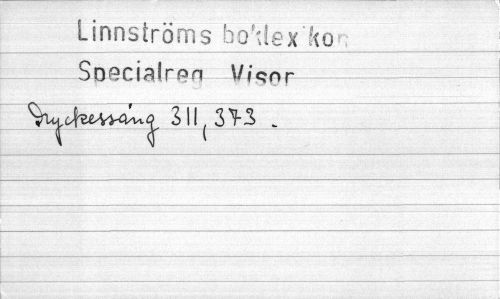 Linnströms boklexikon
Specialreg Visor
Dryckessång 311, 373.